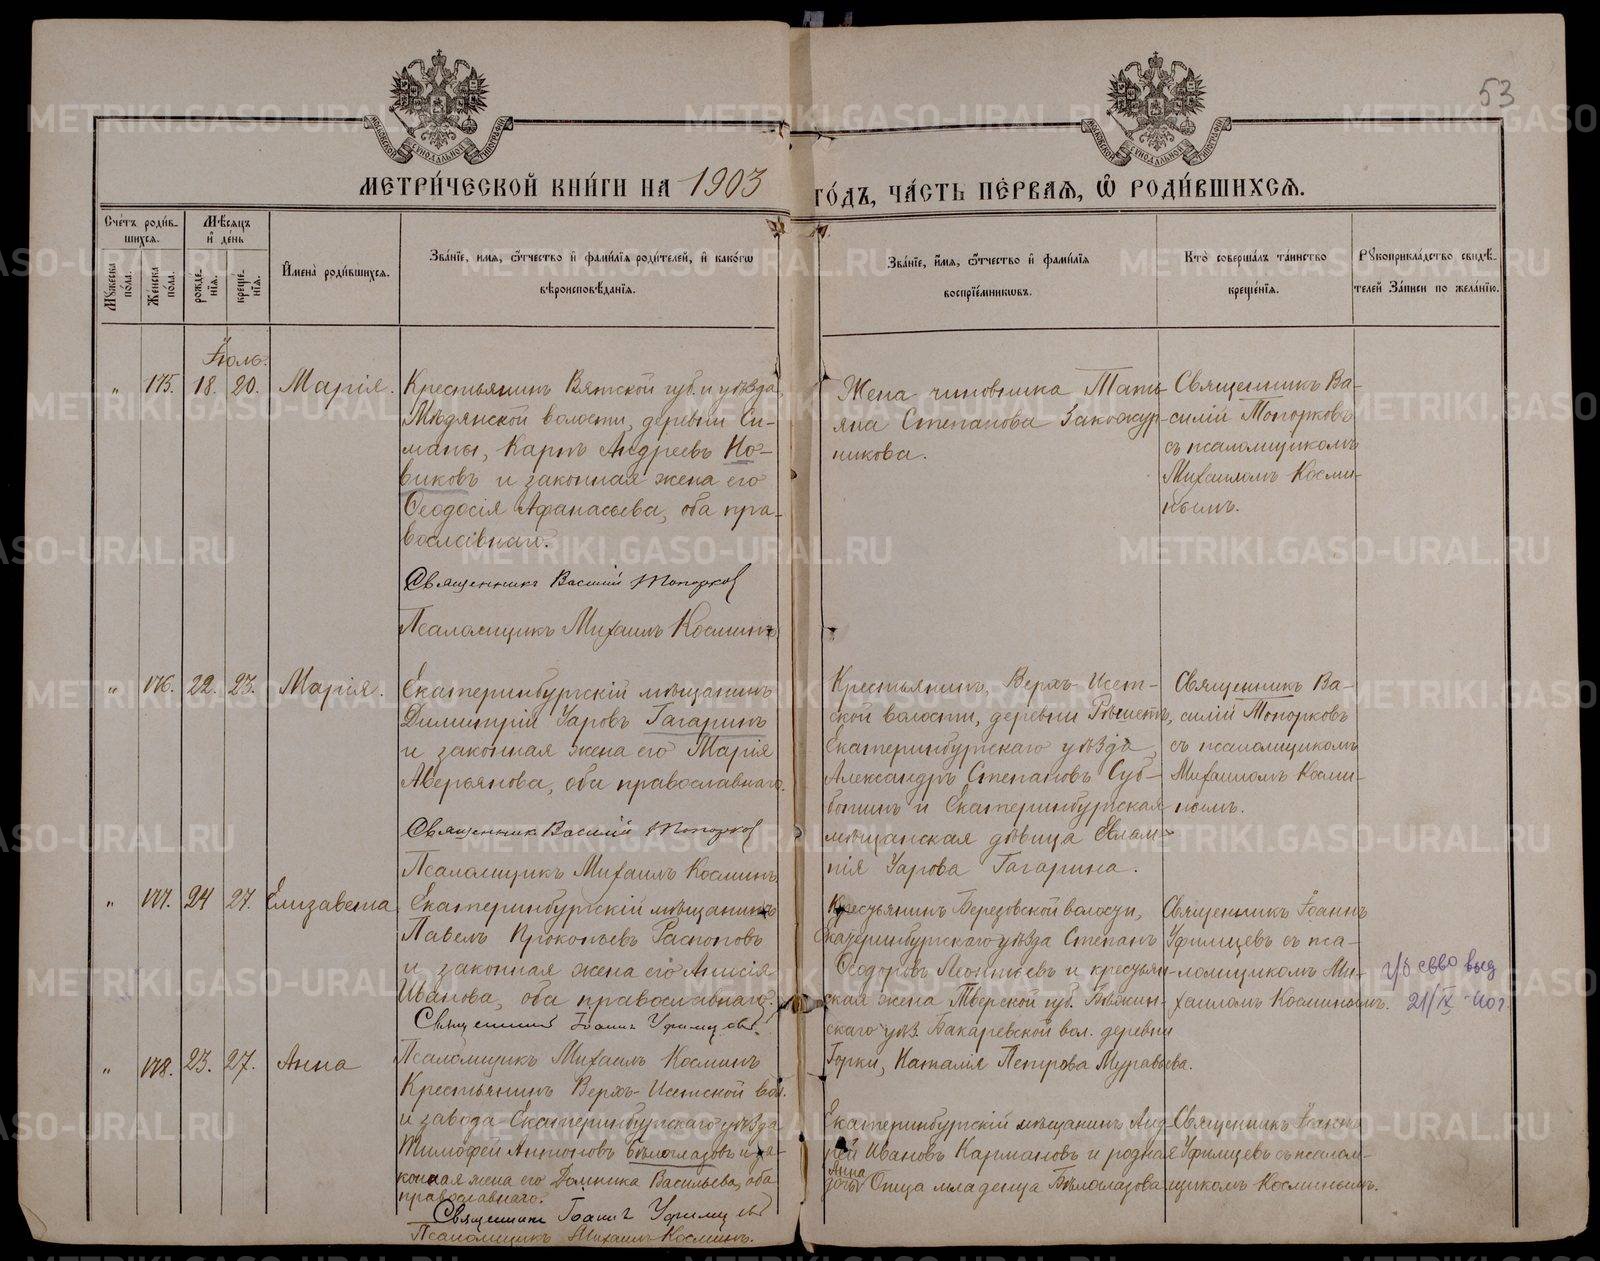 53
МЕТРИ́ЧЕСКОЙ КНИ́ГИ НА 1903 ГО́ДЪ, ЧА́СТЬ ПЕ́РВАѦ, Ѡ РОДИ́ВШИХСѦ.
Сче́тъ роди́в-
шихсѧ.
Мꙋжеска по́ла.
Же́нска по́ла.
Мѣ́сѧцъ
и де́нь
рожде́нїѧ.
креще́нїѧ.
Имена̀ роди́вшихсѧ.
Зва́нїе, имѧ, ѻтчество и фами́лїѧ роди́телей, и како́гѡ
вѣроисповѣ́данїѧ.
Зва́нїе, имѧ, ѻтчество и фами́лїѧ
воспрїе́мникѡвъ.
Кто̀ соверша́лъ та́инство
креще́нїѧ.
Рꙋкоприкла́дство свидѣ́-
телей За́писи по жела́нїю.
Іюль.
" 175. 18. 20. Марія.
Крестьянинъ Вятской губ. и уѣзда
Мѣдянской волости, деревни Си-
маны, Карпъ Андреевъ Но-
виковъ и законная жена его
Ѳеодосія Афанасьева, оба пра-
вославнаго.
Священникъ Василій Топорков
Псаломщикъ Михаилъ Косминъ
Жена чиновника Тать-
яна Степанова Закожур-
никова.
Священникъ Ва-
силій Топорковъ
съ псаломщикомъ
Михаиломъ Косми-
нымъ.
" 176. 22. 23. Марія.
Екатеринбургскій мѣщанинъ
Димитрій Уаровъ Гагаринъ
и законная жена его Марія
Аверьянова, оба православнаго.
Священник Василій Топорков
Псаломщикъ Михаилъ Косминъ
Крестьянинъ, Верхъ-Исет-
ской волости, деревни Рѣшетъ,
Екатеринбургскаго уѣзда,
Александръ Степановъ Суб-
ботинъ и Екатеринбургская
мѣщанская дѣвица Евлам-
пія Уарова Гагарина.
Священникъ Ва-
силій Топорковъ
съ псаломщикомъ
Михаиломъ Косми-
нымъ.
" 177. 24 27. Елизавета
Екатеринбургскій мѣщанинъ
Павелъ Прокопьевъ Распоповъ
и законная жена его Анисія
Иванова, оба православнаго.
Священникъ Іоаннъ Уфимцевъ
Псаломщикъ Михаилъ Косминъ
Крестьянинъ Березовской волости,
Екатеринбургскаго уѣзда Степанъ
Ѳеодоровъ Леонтьевъ и крестьян-
ская жена Тверской губ. Бѣжин-
скаго уѣз. Бакаревской вол. деревни
Горки, Наталія Петрова Муравьева.
Священникъ Іоаннъ
Уфимцевъ съ пса-
ломщикомъ Ми-
хаиломъ Косминымъ.
21/IX-40 г.
" 178. 23. 27. Анна
Крестьянинъ Верхъ-Исетской вол.
и завода Екатеринбургскаго уѣзда
Тимофей Антоновъ Бѣлоглазовъ и за-
конная жена его Домника Васильева, оба
православнаго.
Священникъ Іоаннъ Уфимцевъ
Псаломщикъ Михаилъ Косминъ.
Екатеринбургскій мѣщанинъ Анд-
рей Ивановъ Кармановъ и родная
Анна
дочь Отца младенца Бѣлоглазова
Священникъ Іоаннъ
Уфимцевъ съ псалом-
щикомъ Косминымъ.